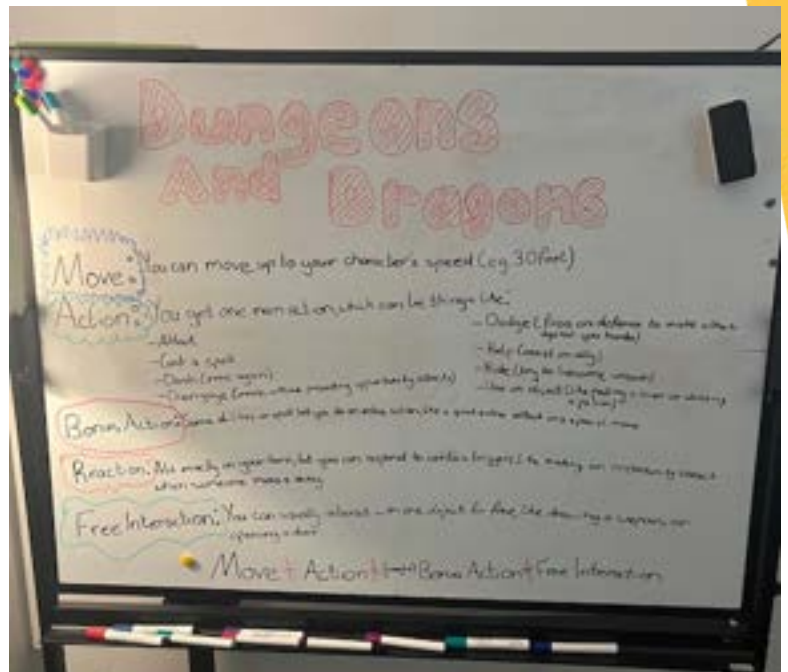 Dungeons
And Dragons
Move: You can move up to your character's speed (eg 30 feet)
Action: You get one main action, which can be things like:
- Attack
- Cast a spell
- Dash (move again)
- Disengage (move without provoking opportunity attacks)
- Dodge (focus on defence to make attacks
against you harder)
- Help (assist an ally)
- Hide (try to become unseen)
- Use an object (like pulling a lever or drinking
a potion)
Bonus Action: Some abilities or spells let you do an extra action, like a quick attack or a special move
Reaction: Not exactly on your turn, but you can respond to certain triggers, like making an opportunity attack
when someone moves away
Free Interaction: You can usually interact with one object for free, like drawing a weapon or
opening a door
Move + Action + Bonus Action + Free Interaction